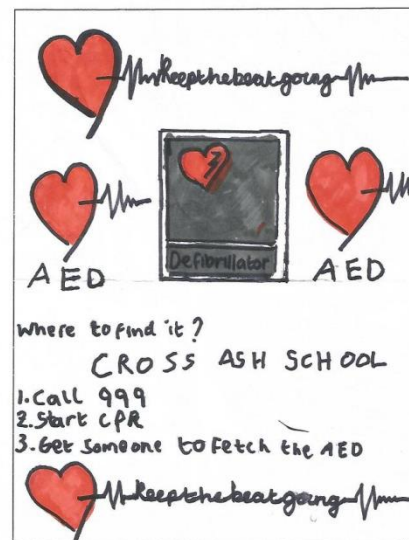 Keepthebeatgoing
Defibrillator
AED AED
Where to find it?
CROSS ASH SCHOOL
1. Call 999
2. Start CPR
3. Get someone to fetch the AED
Keepthebeatgoing